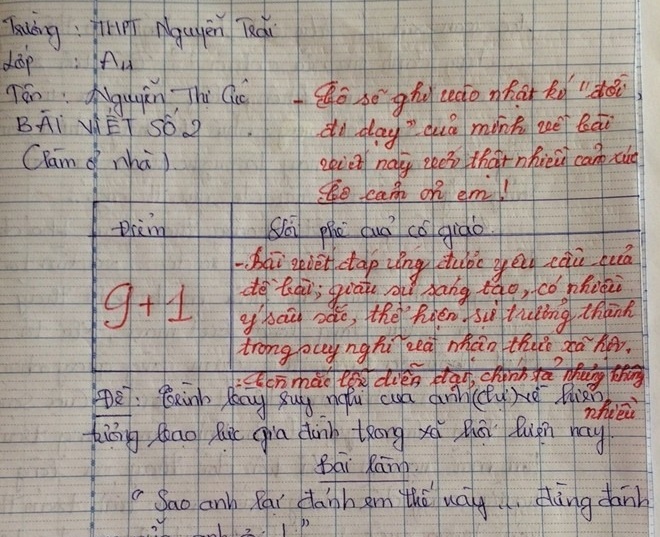 Trường: THPT Nguyễn Trãi
Lớp : A4
Tên : Nguyễn Thị Cúc
BÀI VIẾT SỐ 2
(Làm ở nhà)
- Cô sẽ ghi vào nhật kí "đời
đi dạy" của mình về bài
viết này với thật nhiều cảm xúc
Cô cảm ơn em!
Điểm
Lời phê của cô giáo
9+1
- Bài viết đáp ứng được yêu cầu của
đề bài; giàu sự sáng tạo, có nhiều
ý sâu sắc, thể hiện sự trưởng thành
trong suy nghĩ và nhận thức xã hội.
- Còn mắc lỗi diễn đạt, chính tả nhưng không
nhiều
Đề: Trình bày suy nghĩ của anh (chị) về hiện
tượng bạo lực gia đình trong xã hội hiện nay.
Bài làm
"Sao anh lại đánh em thế này ... đừng đánh